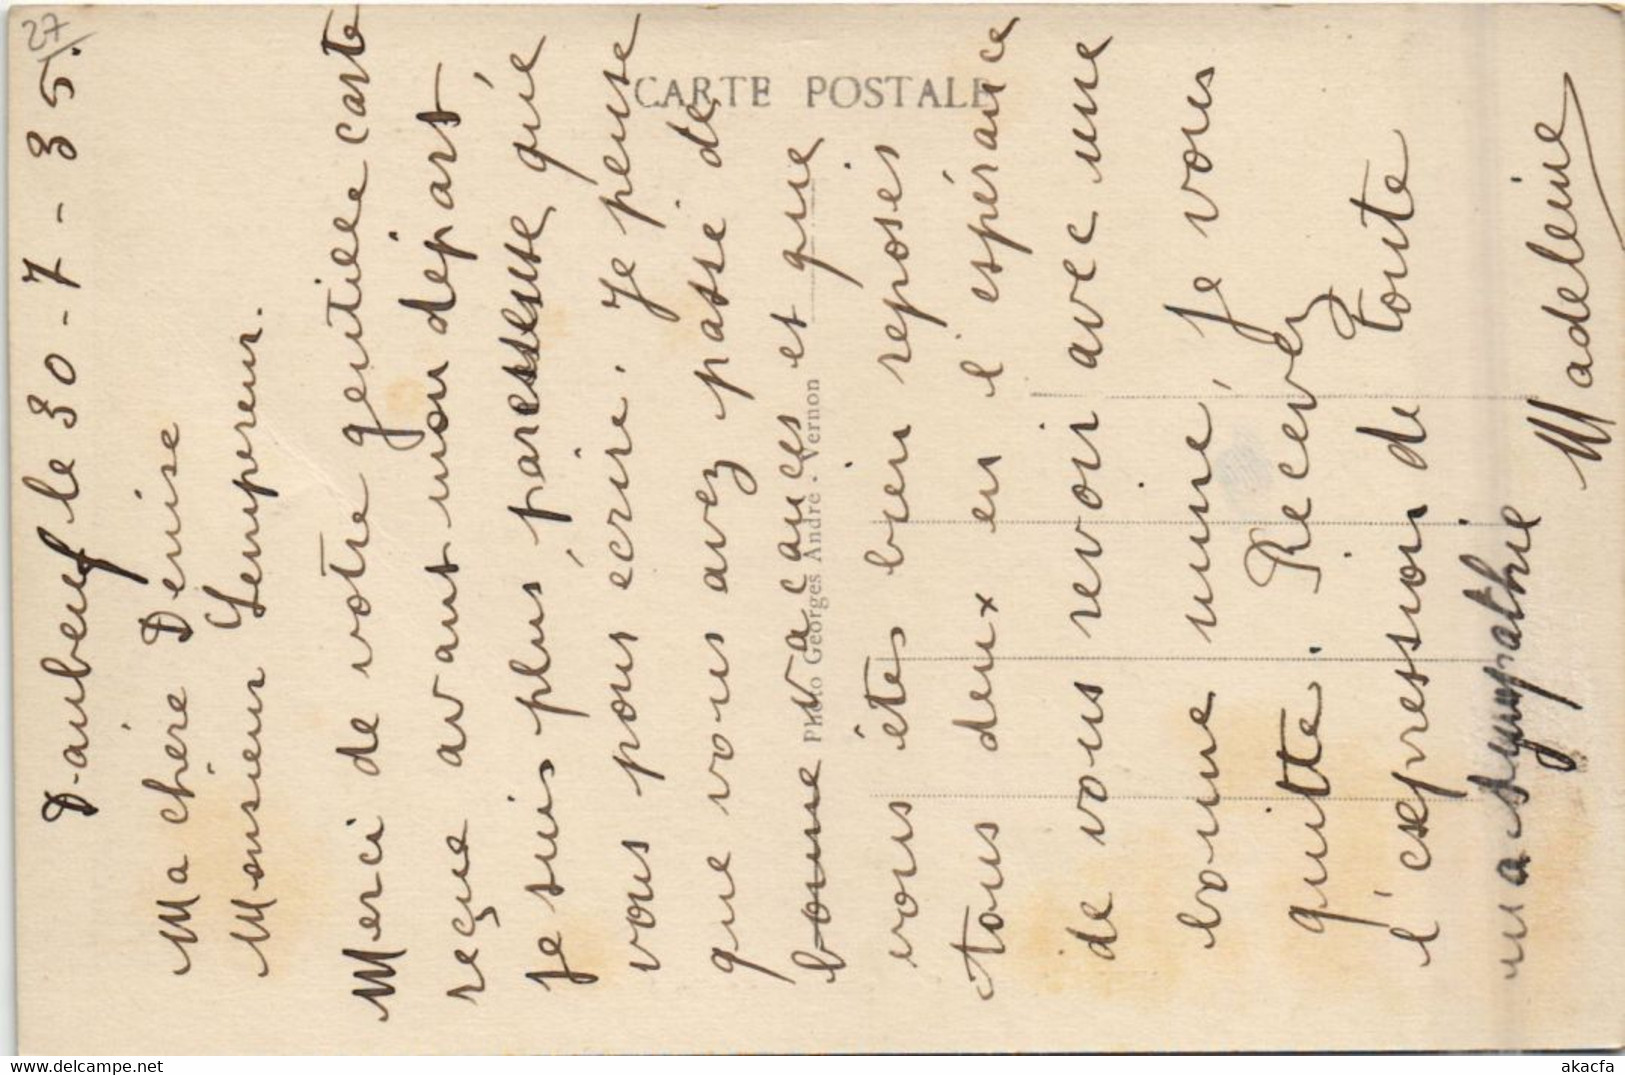 27
Daubeuf le 30-7-35.
Ma chère Denise
Monsieur Lempereur.
Merci de votre gentille carte
reçue avant mon départ
je suis plus paresseuse que
vous pour écrire. Je pense
que vous avez passé de
bonne vacances et que
vous êtes bien reposés
tous deux en l'espérance
de vous revoir avec une
bonne mine, je vous
quitte. Recevez
l'expression de toute
ma sympathie
Madeleine
CARTE POSTALE
Photo Georges André - Vernon
akacfa